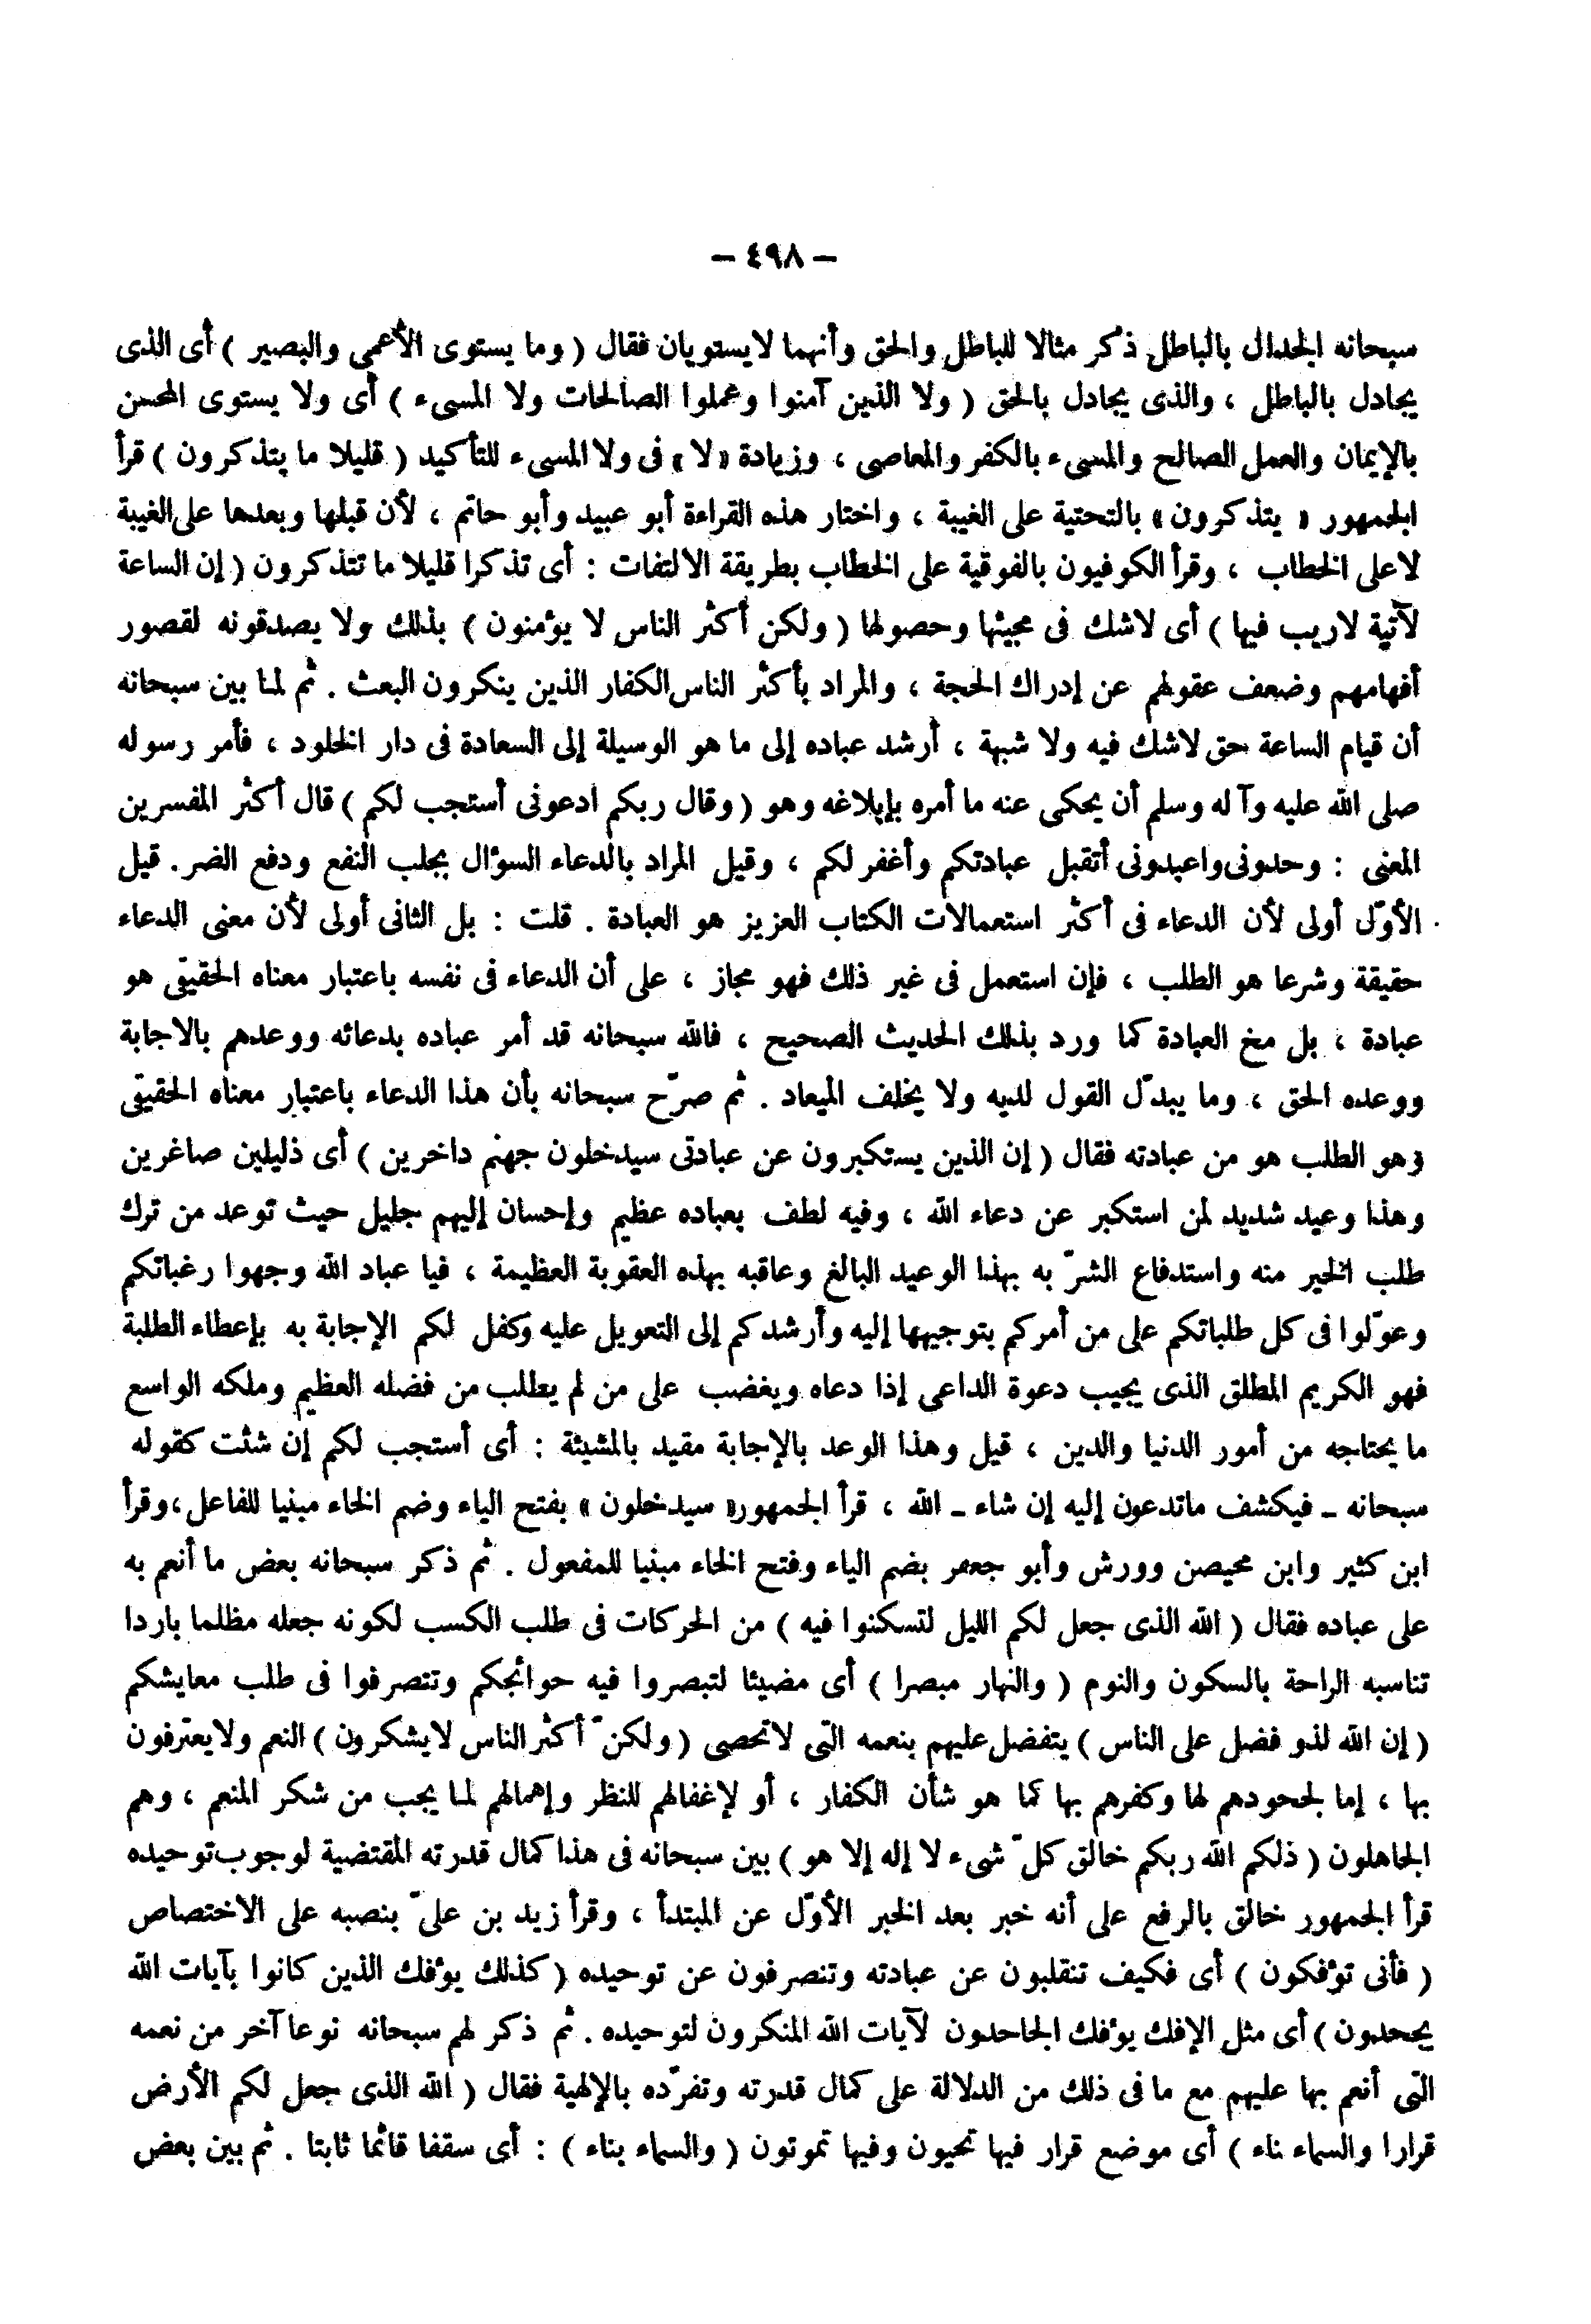 — ٤٩٨ —
سبحانه الجدال بالباطل ذكر مثالا للباطل والحق وأنهما لايستويان فقال ( وما يستوى الأعمى والبصير ) أى الذى
يجادل بالباطل ، والذى يجادل بالحق ( ولا الذين آمنوا وعملوا الصالحات ولا المسىء ) أى ولا يستوى المحسن
بالإيمان والعمل الصالح والمسىء بالكفر والمعاصى ، وزيادة «لا» فى ولا المسىء للتأكيد ( قليلا ما يتذكرون ) قرأ
الجمهور « يتذكرون » بالتحتية على الغيبة ، واختار هذه القراءة أبو عبيد وأبو حاتم ، لأن قبلها وبعدها على الغيبة
لاعلى الخطاب ، وقرأ الكوفيون بالفوقية على الخطاب بطريقة الالتفات : أى تذكرا قليلا ما تتذكرون ( إن الساعة
لآتية لاريب فيها ) أى لاشك فى مجيئها وحصولها ( ولكن أكثر الناس لا يؤمنون ) بذلك ولا يصدقونه لقصور
أفهامهم وضعف عقولهم عن إدراك الحجة ، والمراد بأكثر الناس الكفار الذين ينكرون البعث . ثم لما بين سبحانه
أن قيام الساعة حق لاشك فيه ولا شبهة ، أرشد عباده إلى ما هو الوسيلة إلى السعادة فى دار الخلود ، فأمر رسوله
صلى الله عليه وآله وسلم أن يحكى عنه ما أمره بإبلاغه وهو ( وقال ربكم ادعونى أستجب لكم ) قال أكثر المفسرين
المعنى : وحدونى واعبدونى أتقبل عبادتكم وأغفر لكم ، وقيل المراد بالدعاء السؤال بجلب النفع ودفع الضر. قيل
الأوّل أولى لأن الدعاء فى أكثر استعمالات الكتاب العزيز هو العبادة . قلت : بل الثانى أولى لأن معنى الدعاء
حقيقة وشرعا هو الطلب ، فإن استعمل فى غير ذلك فهو مجاز ، على أن الدعاء فى نفسه باعتبار معناه الحقيقى هو
عبادة ، بل مخ العبادة كما ورد بذلك الحديث الصحيح ، فالله سبحانه قد أمر عباده بدعائه ووعدهم بالاجابة
ووعده الحق ، وما يبدّل القول لديه ولا يخلف الميعاد . ثم صرّح سبحانه بأن هذا الدعاء باعتبار معناه الحقيقى
وهو الطلب هو من عبادته فقال ( إن الذين يستكبرون عن عبادتى سيدخلون جهنم داخرين ) أى ذليلين صاغرين
وهذا وعيد شديد لمن استكبر عن دعاء الله ، وفيه لطف بعباده عظيم وإحسان إليهم جليل حيث توعد من ترك
طلب الخير منه واستدفاع الشرّ به بهذا الوعيد البالغ وعاقبه بهذه العقوبة العظيمة ، فيا عباد الله وجهوا رغباتكم
وعوّلوا فى كل طلباتكم على من أمركم بتوجيهها إليه وأرشدكم إلى التعويل عليه وكفل لكم الإجابة به بإعطاء الطلبة
فهو الكريم المطلق الذى يجيب دعوة الداعى إذا دعاه ويغضب على من لم يطلب من فضله العظيم وملكه الواسع
ما يحتاجه من أمور الدنيا والدين ، قيل وهذا الوعد بالإجابة مقيد بالمشيئة : أى أستجب لكم إن شئت كقوله
سبحانه ـ فيكشف ماتدعون إليه إن شاء ـ الله ، قرأ الجمهور« سيدخلون » بفتح الياء وضم الخاء مبنيا للفاعل،وقرأ
ابن كثير وابن محيصن وورش وأبو جعفر بضم الياء وفتح الخاء مبنيا للمفعول . ثم ذكر سبحانه بعض ما أنعم به
على عباده فقال ( الله الذى جعل لكم الليل لتسكنوا فيه ) من الحركات فى طلب الكسب لكونه جعله مظلما باردا
تناسبه الراحة بالسكون والنوم ( والنهار مبصرا ) أى مضيئا لتبصروا فيه حوائجكم وتتصرفوا فى طلب معايشكم
( إن الله لذو فضل على الناس ) يتفضل عليهم بنعمه التى لاتحصى ( ولكنّ أكثر الناس لايشكرون ) النعم ولايعترفون
بها ، إما لجحودهم لها وكفرهم بها كما هو شأن الكفار ، أو لإغفالهم للنظر وإهمالهم لما يجب من شكر المنعم ، وهم
الجاهلون ( ذلكم الله ربكم خالق كلّ شىء لا إله إلا هو ) بين سبحانه فى هذا كمال قدرته المقتضية لوجوب توحيده
قرأ الجمهور خالق بالرفع على أنه خبر بعد الخبر الأوّل عن المبتدأ ، وقرأ زيد بن علىّ بنصبه على الاختصاص
( فأنى تؤفكون ) أى فكيف تنقلبون عن عبادته وتنصرفون عن توحيده ( كذلك يؤفك الذين كانوا بآيات الله
يجحدون ) أى مثل الإفك يؤفك الجاحدون لآيات الله المنكرون لتوحيده . ثم ذكر لهم سبحانه نوعا آخر من نعمه
التى أنعم بها عليهم مع ما فى ذلك من الدلالة على كمال قدرته وتفرّده بالإلهية فقال ( الله الذى جعل لكم الأرض
قرارا والسماء ناء ) أى موضع قرار فيها تحيون وفيها تموتون ( والسماء بناء ) : أى سقفا قائما ثابتا . ثم بين بعض